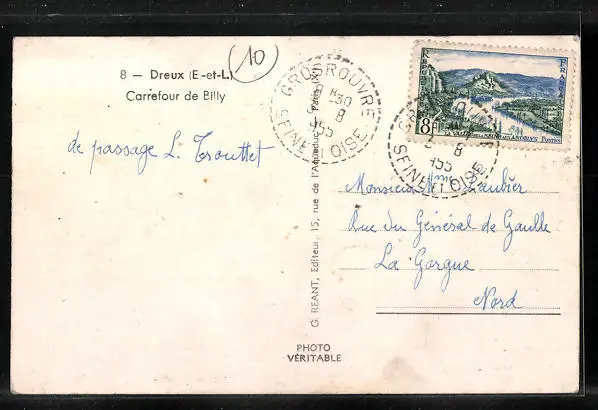 8 — Dreux (E-et-L)
Carrefour de Billy
10
de passage L. Trouttet
GROSROUVRE
SEINE ET OISE
8
1955
RÉPUBLIQUE
FRANÇAISE
8F
LA VALLÉE DE LA SEINE AUX ANDELYS POSTES
G. RÉANT, Editeur, 15, rue de l'Aqueduc - Paris (X)
Monsieur Mme Laubier
Rue du Général de Gaulle
La Gorgue
Nord
PHOTO
VÉRITABLE